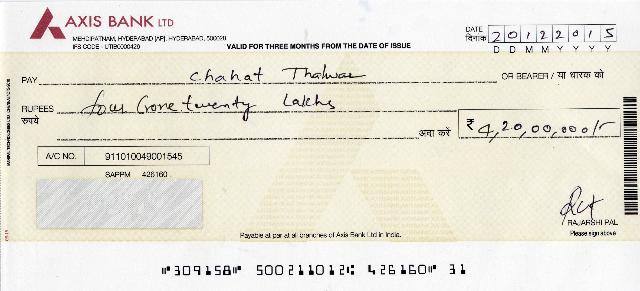 AXIS BANK LTD
MEHDIPATNAM, HYDERABAD [AP], HYDERABAD, 500028
IFS CODE - UTIB0000420
VALID FOR THREE MONTHS FROM THE DATE OF ISSUE
DATE
दिनांक 20122015
D D M M Y Y Y Y
PAY Chahat Thalwae OR BEARER / या धारक को
RUPEES four Crore twenty Lakhs
रुपये
अदा करें ₹ 4,20,00,000/-
A/C NO. 911010049001545
SAPPM 426160
RAJARSHI PAL
Please sign above
Payable at par at all branches of Axis Bank Ltd in India.
⑈309158⑈ 500211012⑆ 426160⑈ 31